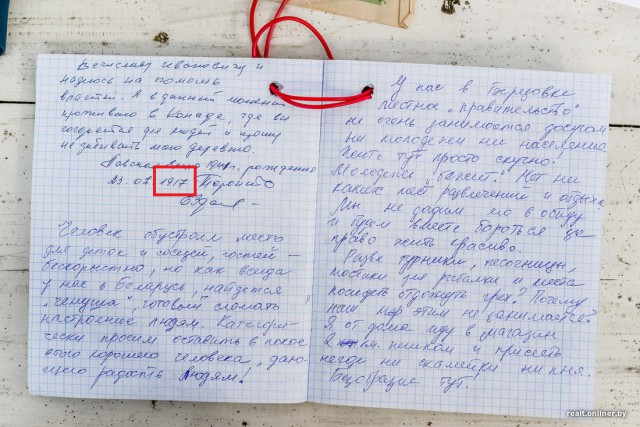 Вячеславу Ивановичу и
надеюсь на помощь
властей. А в данный момент
проживаю в Канаде, где вы
для людей и прошу
не забывать мою деревню.
рождения
23.07 1917 Торонто
Человек обустроил место
для деток и соседей, гостей –
бескорыстно, но как всегда
у нас в Беларусь, найдется
"чинуша", готовый сломать
настроение людям. Категори-
чески просим оставить в покое
этого хорошего человека, даю-
щего радость людям!
У нас в Боровке
местное "правительство"
не очень занимается досугом
ни молодежи ни населения.
Жить тут просто скучно!
Молодежь "бежит". Нет ни
каких мест развлечений и отдыха.
Мы не дадим его в обиду
и будем вместе бороться за
право жить красиво.
Разве турники, песочницы,
мостики для рыбалки и места
посидеть отдохнуть грех? Почему
наш этим не занимается?
Я от дома иду в магазин
2 км. пешком и присесть
негде ни скамейки ни пня.
Безобразие тут!
realt.onliner.by